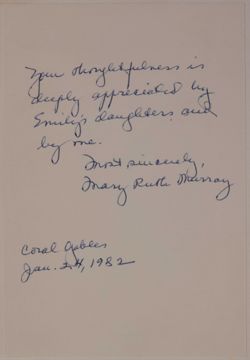 Your thoughtfulness is
deeply appreciated by
Emily's daughters and
by me.
Most sincerely,
Mary Ruth Murray
Coral Gables
Jan. 24, 1982